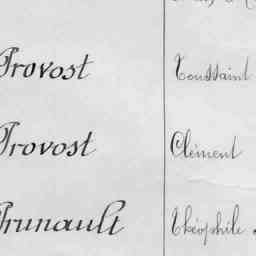 Provost Toussaint
Provost Clément
Prunault Théophile